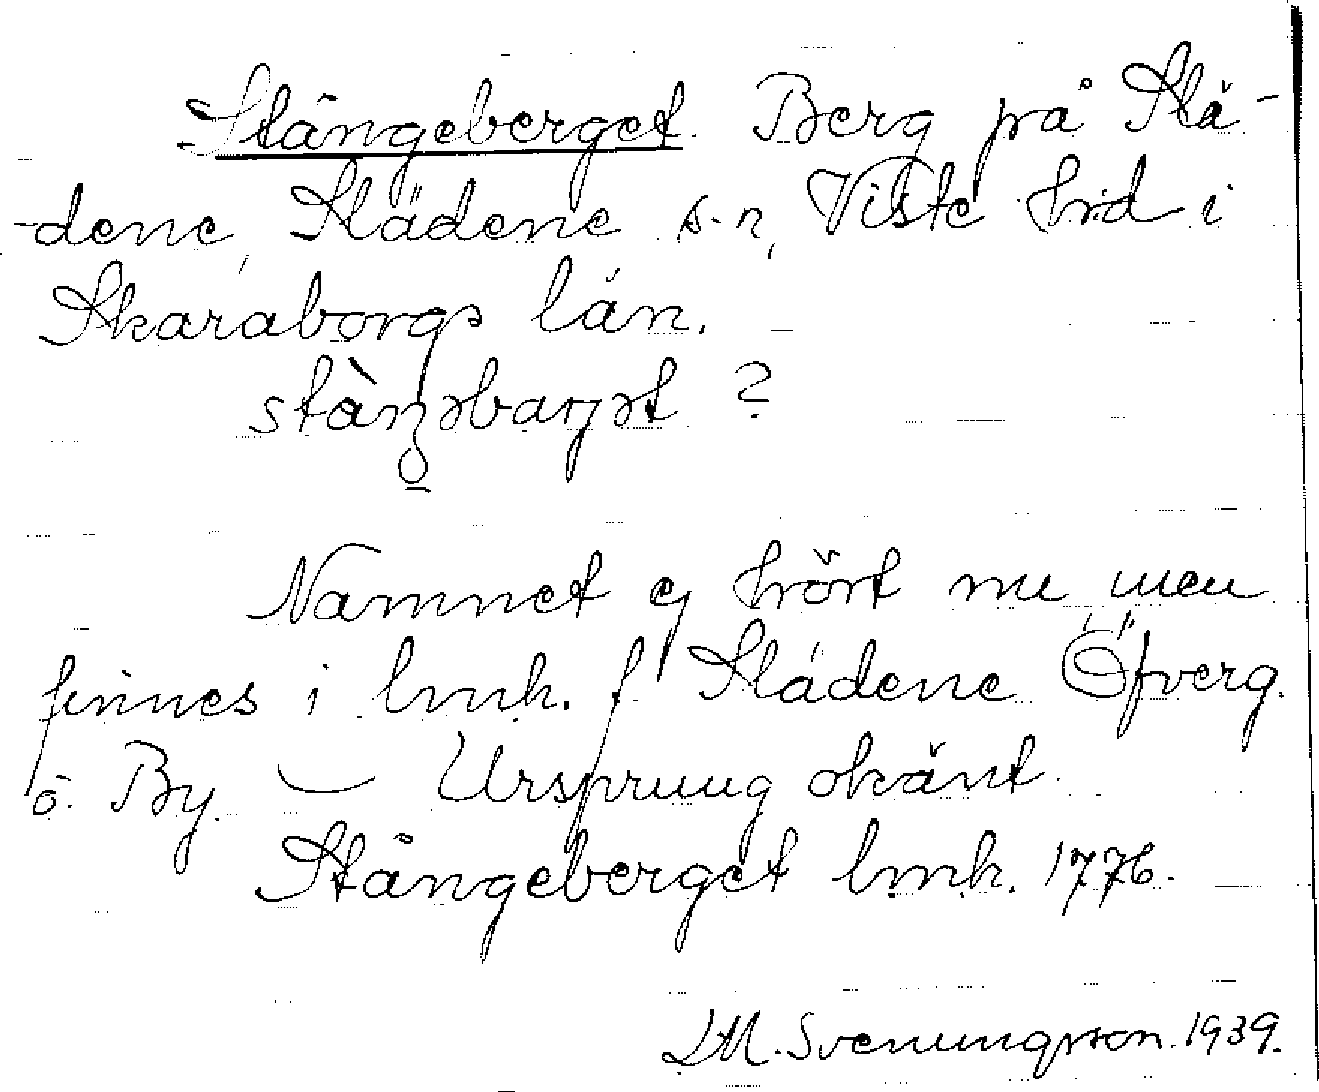 Stångeberget. Berg på Slä-
-dene, Slädene s-n, Viste hrd i
Skaraborgs län.
stàŋəbarjət ?
Namnet ej hört nu men
finnes i lmk. f. Slädene Öfverg.
o. By. — Ursprung okänt.
Stångeberget lmk. 1776.
D.M. Svenungsson. 1939.